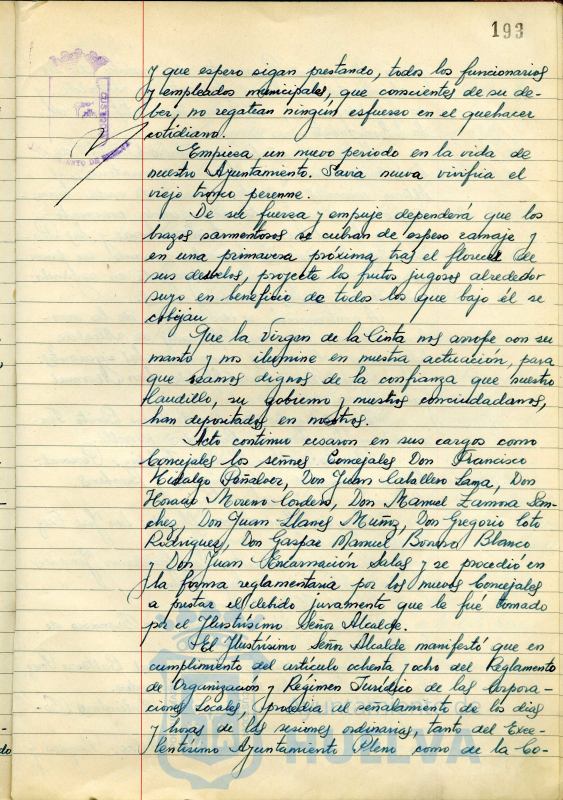 193
y que espero sigan prestando, todos los funcionarios
y empleados municipales, que conscientes de su de-
ber, no regatean ningún esfuerzo en el quehacer
cotidiano.
Empieza un nuevo periodo en la vida de
nuestro Ayuntamiento. Savia nueva vivifica el
viejo tronco perenne.
De su fuerza y empuje dependerá que los
brazos sarmentosos se cubran de espeso ramaje y
en una primavera próxima tras el florecer de
sus desvelos, proyecte los frutos jugosos alrededor
suyo en beneficio de todos los que bajo él se
cobijan
Que la Virgen de la Cinta nos arrope con su
manto y nos ilumine en nuestra actuación, para
que seamos dignos de la confianza que nuestro
Caudillo, su gobierno y nuestros conciudadanos,
han depositados en nosotros.
Acto continuo cesaron en sus cargos como
Concejales los señores Concejales Don Francisco
Hidalgo Peñalosa, Don Juan Caballero Lama, Don
Horacio Moreno Cordero, Don Manuel Zamora San-
chez, Don Juan Llanes Muñoz, Don Gregorio Coto
Rodriguez, Don Gaspar Manuel Bonoso Blanco
y Don Juan Encarnación Salas y se procedió en
la forma reglamentaria por los nuevos Concejales
a prestar el debido juramento que le fué tomado
por el Ilustrísimo Señor Alcalde.
El Ilustrísimo Señor Alcalde manifestó que en
cumplimiento del artículo ochenta y ocho del Reglamento
de Organización y Régimen Jurídico de las Corpora-
ciones Locales, procedia al señalamiento de los dias
y horas de las sesiones ordinarias, tanto del Exce-
lentísimo Ayuntamiento Pleno como de la Co-
HUELVA